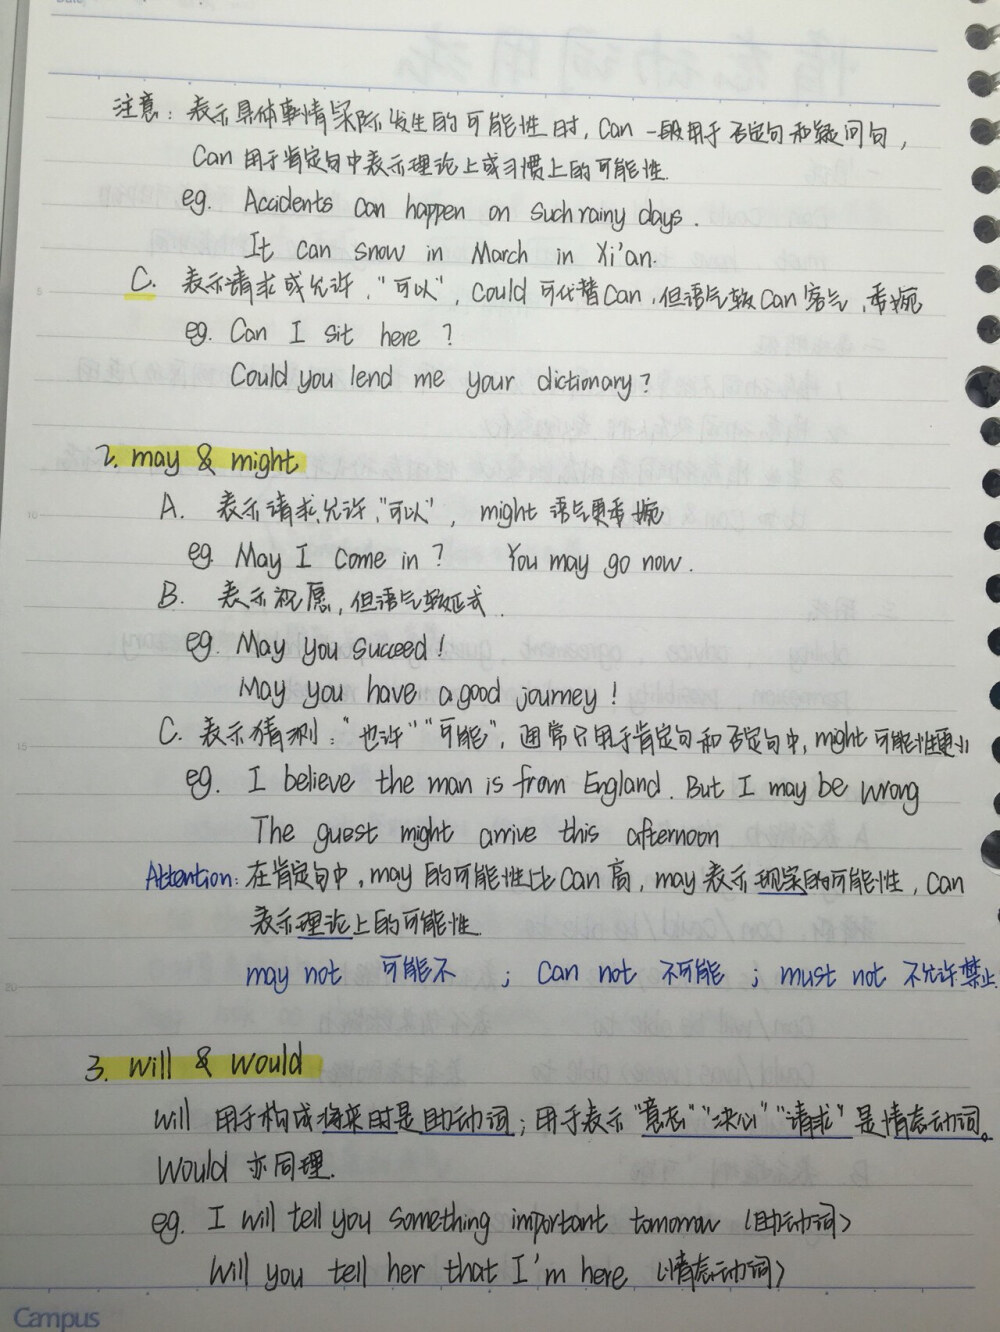 注意：表示具体事情实际发生的可能性时，Can 一般用于否定句和疑问句，
Can 用于肯定句中表示理论上或习惯上的可能性.
eg. Accidents can happen on such rainy days.
It can snow in March in Xi'an.
C. 表示请求或允许，"可以"，Could 可代替 Can，但语气较 Can 客气，委婉
eg. Can I sit here ?
Could you lend me your dictionary?
2. may & might
A. 表示请求、允许，"可以"，might 语气更委婉
eg. May I come in ? You may go now.
B. 表示祝愿，但语气较正式.
eg. May you succeed!
May you have a good journey!
C. 表示猜测："也许""可能"，通常只用于肯定句和否定句中，might 可能性更小
eg. I believe the man is from England. But I may be wrong
The guest might arrive this afternoon
Attention: 在肯定句中，may 的可能性比 can 高，may 表示现实的可能性，can
表示理论上的可能性.
may not 可能不 ; can not 不可能 ; must not 不允许禁止.
3. will & would
will 用于构成将来时是助动词；用于表示"意志""决心""请求"是情态动词。
Would 亦同理.
eg. I will tell you something important tomorrow (助动词)
Will you tell her that I'm here (情态动词)
Campus